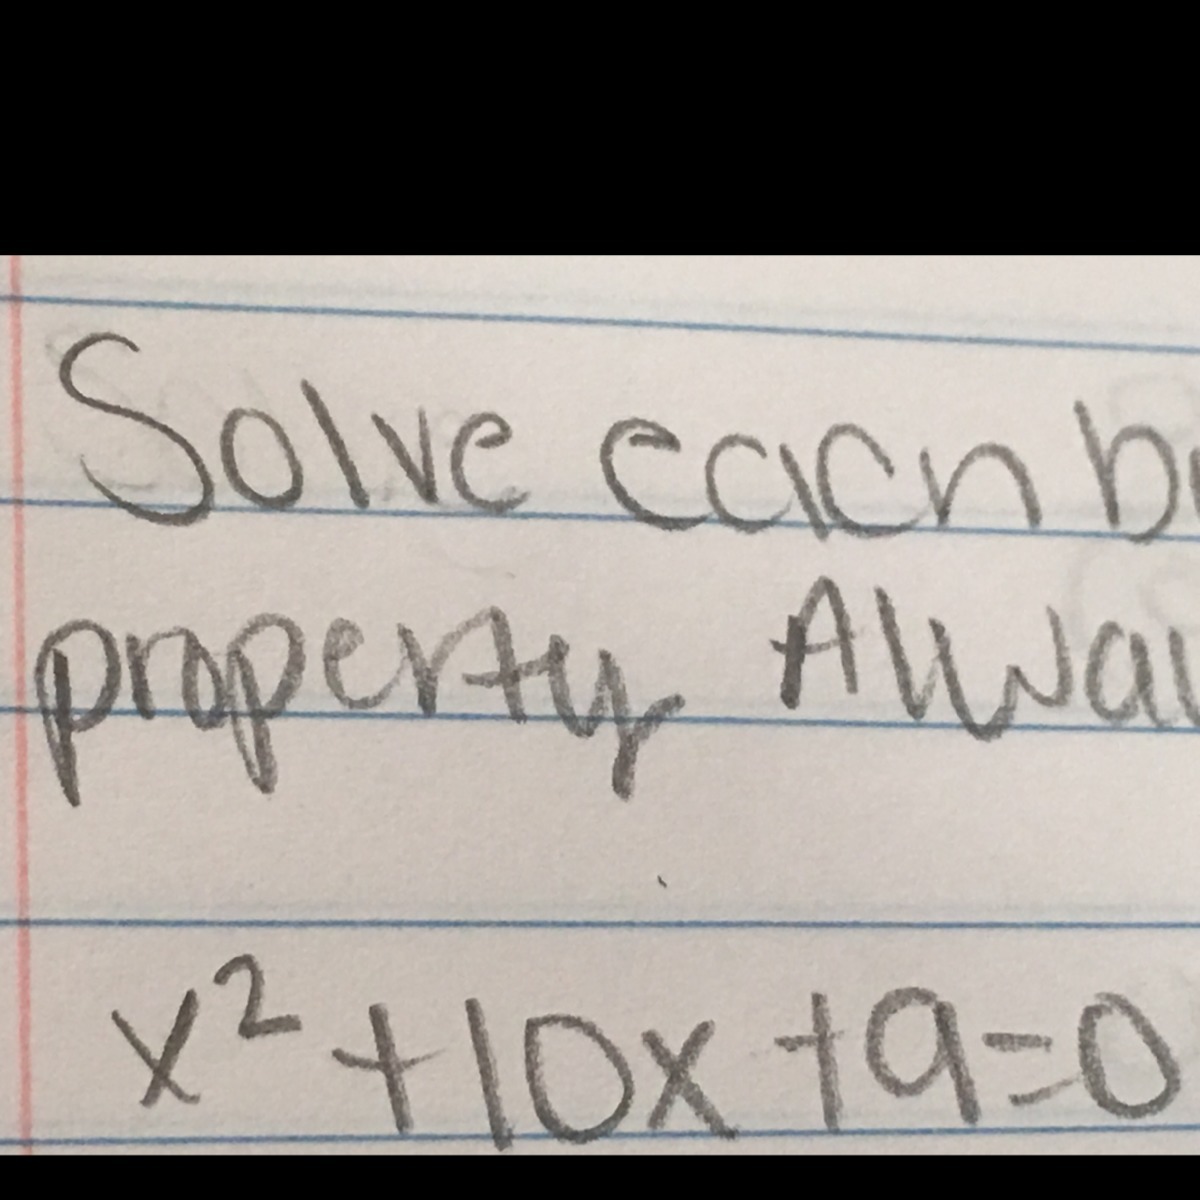 Solve each
property. Alwa
x² + 10x + 9 = 0